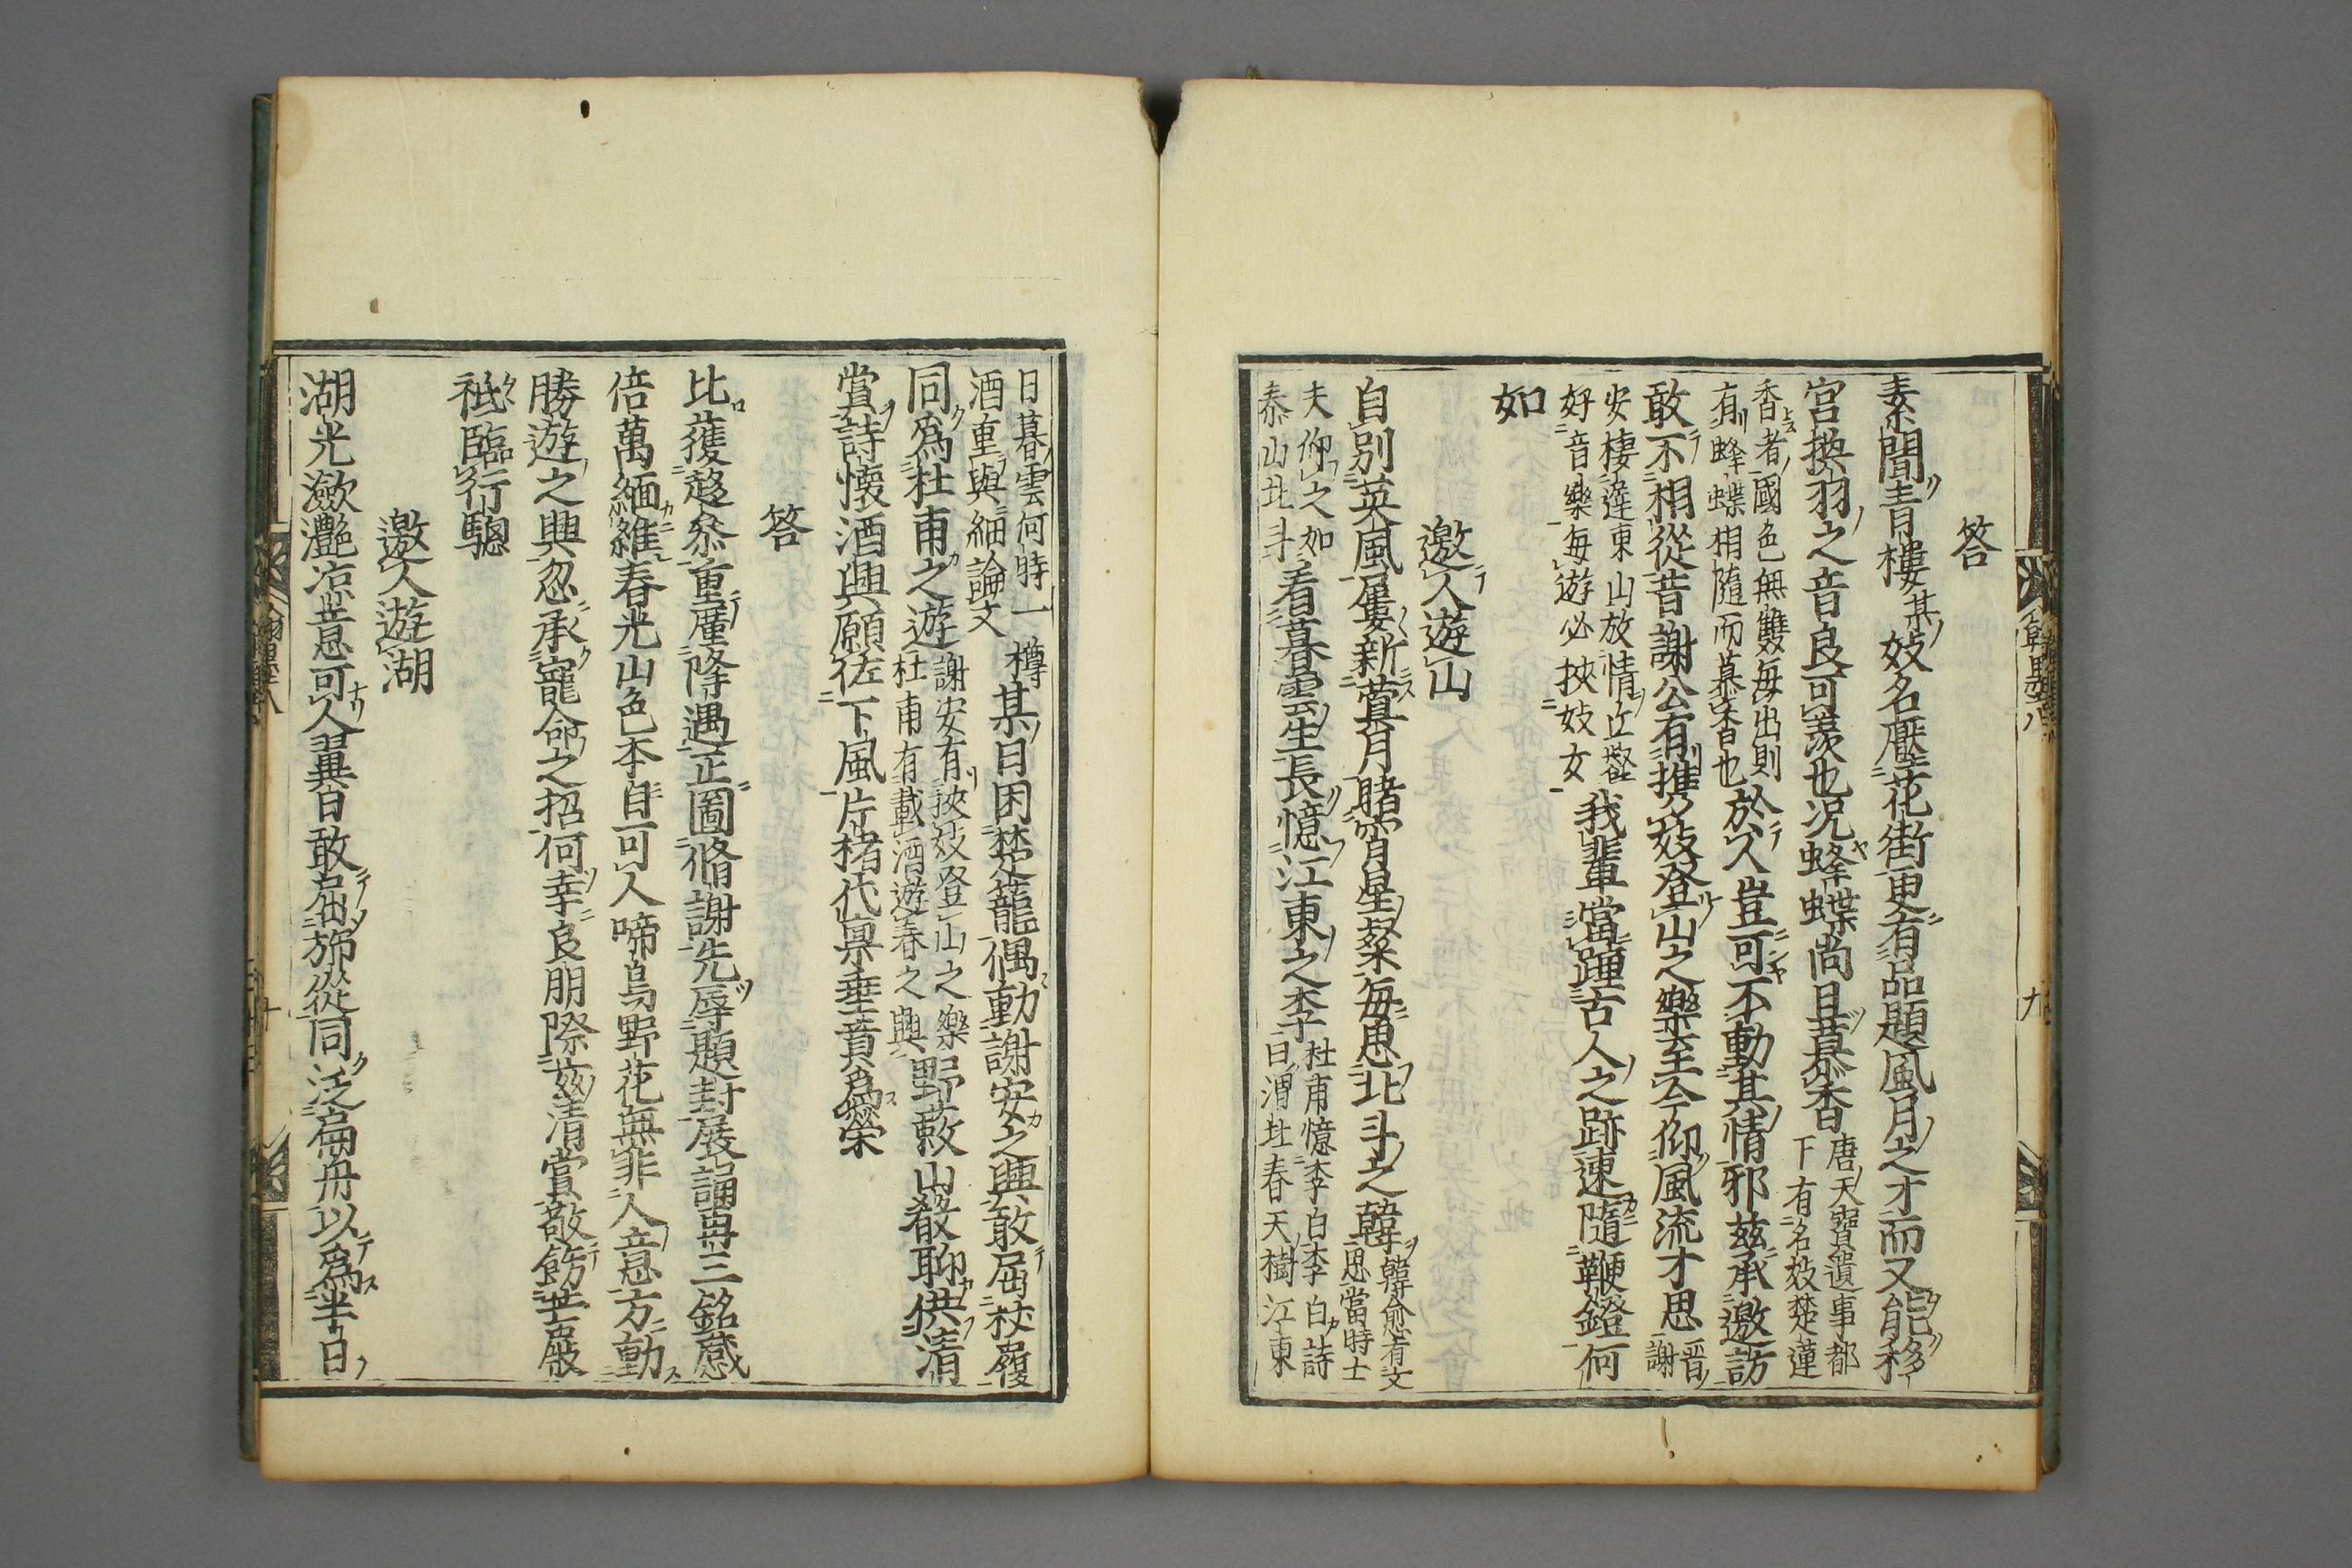 答
素聞青樓某妓名壓花街更有品題風月之才而又能移
宮換羽之音良可羨也況蜂蝶尚且慕香唐天寶遺事都下有名妓楚蓮
香者國色無雙每出則有蜂蝶相隨而慕香也於人豈可不動其情邪茲承邀訪
敢不相從昔謝公有携妓登山之樂至今仰風流才思晋謝
安棲遲東山放情丘壑好音樂每遊必挾妓女我輩當踵古人之跡速隨鞭鐙何
如
邀人遊山
自別英風屢新蓂月睹宵星粲每思北斗之韓韓愈有文思當時士
夫仰之如泰山北斗看暮雲生長憶江東之李杜甫憶李白李白詩曰渭北春天樹江東
日暮雲何時一樽酒重與細論文某日困樊籠偶動謝安之興敢屈杖履
同為杜甫之遊謝安有挾妓登山之樂杜甫有載酒遊春之興野蔌山殽聊供清
賞詩懷酒興願佐下風片楮代稟垂賁為榮
答
比獲趍叅重廑降遇正圖脩謝先辱題封展誦再三銘感
倍萬緬維春光山色本自可人啼鳥野花無非人意方動
勝遊之興忽承寵命之招何幸良朋際茲清賞敬飭芒屐
祗臨行驄
邀人遊湖
湖光瀲灧凉意可人翼日敢屈旆從同泛扁舟以為半日